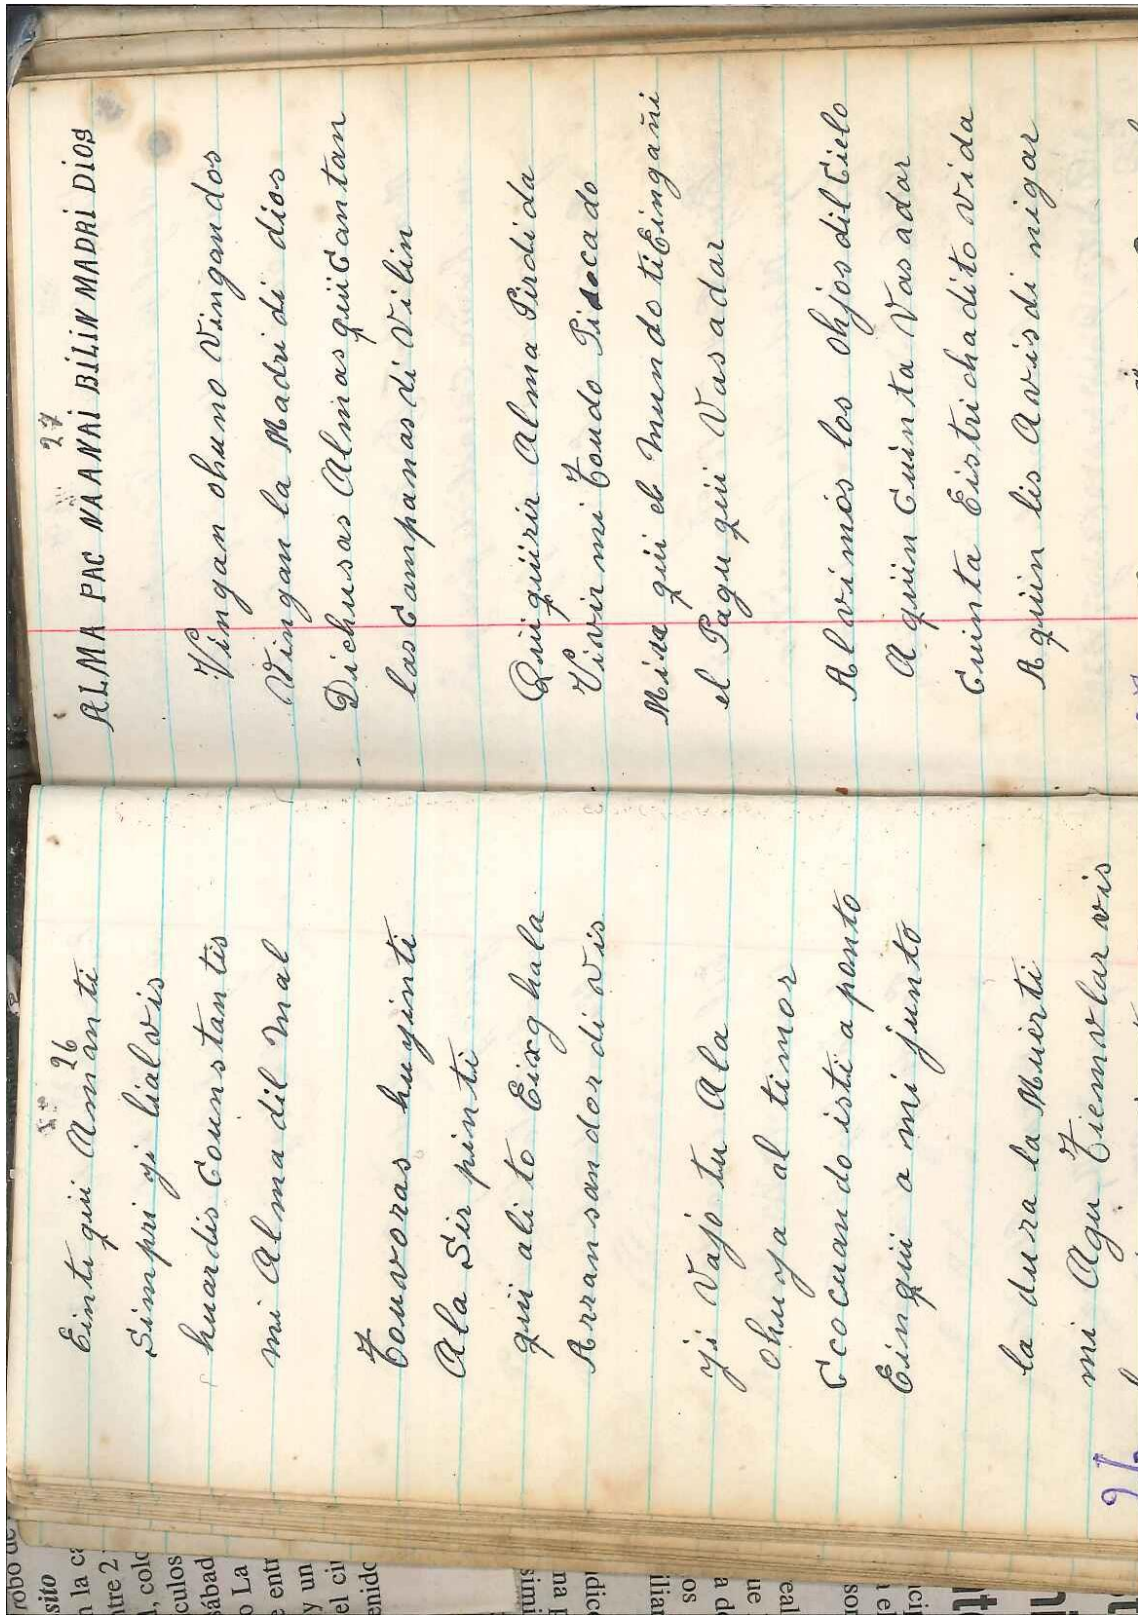 26
Einti qüi Amanti
Simpri yi lialvis
huardis Counstantis
mi Alma dil mal
Touvoras huyinti
Ala Sir pinti
qüi ali to Eixghala
Arransandor di vis
yi Vajo tu Ala
Ohuya al timor
Ccocuando isti a ponto
Einqüi a mi junto
la dura la Muirti
mi Agu Tiemvlar vis
27
ALMA PAC NAANAI BILIN MADRI DIOS
Vingan ohuno Vingandos
Vingan la Madri di dios
Dichusas Almas qüi Cantan
las Campanas di Vilin
Qüi qüirir Alma Pirdida
Vivir mi Toudo Pidocado
Mira qüi el Mundo ti Eingañi
el Pagu qüi Vas adar
Alvimos los Ohjos dil Cielo
A qüin Cuinta Vas adar
Cuinta Eistrichadito vida
A quin lis Avis di nigar
robo de
sito
n la ca
ntre 2
l, colo
culos
sábad
o La
e entr
y un
el ciu
enido